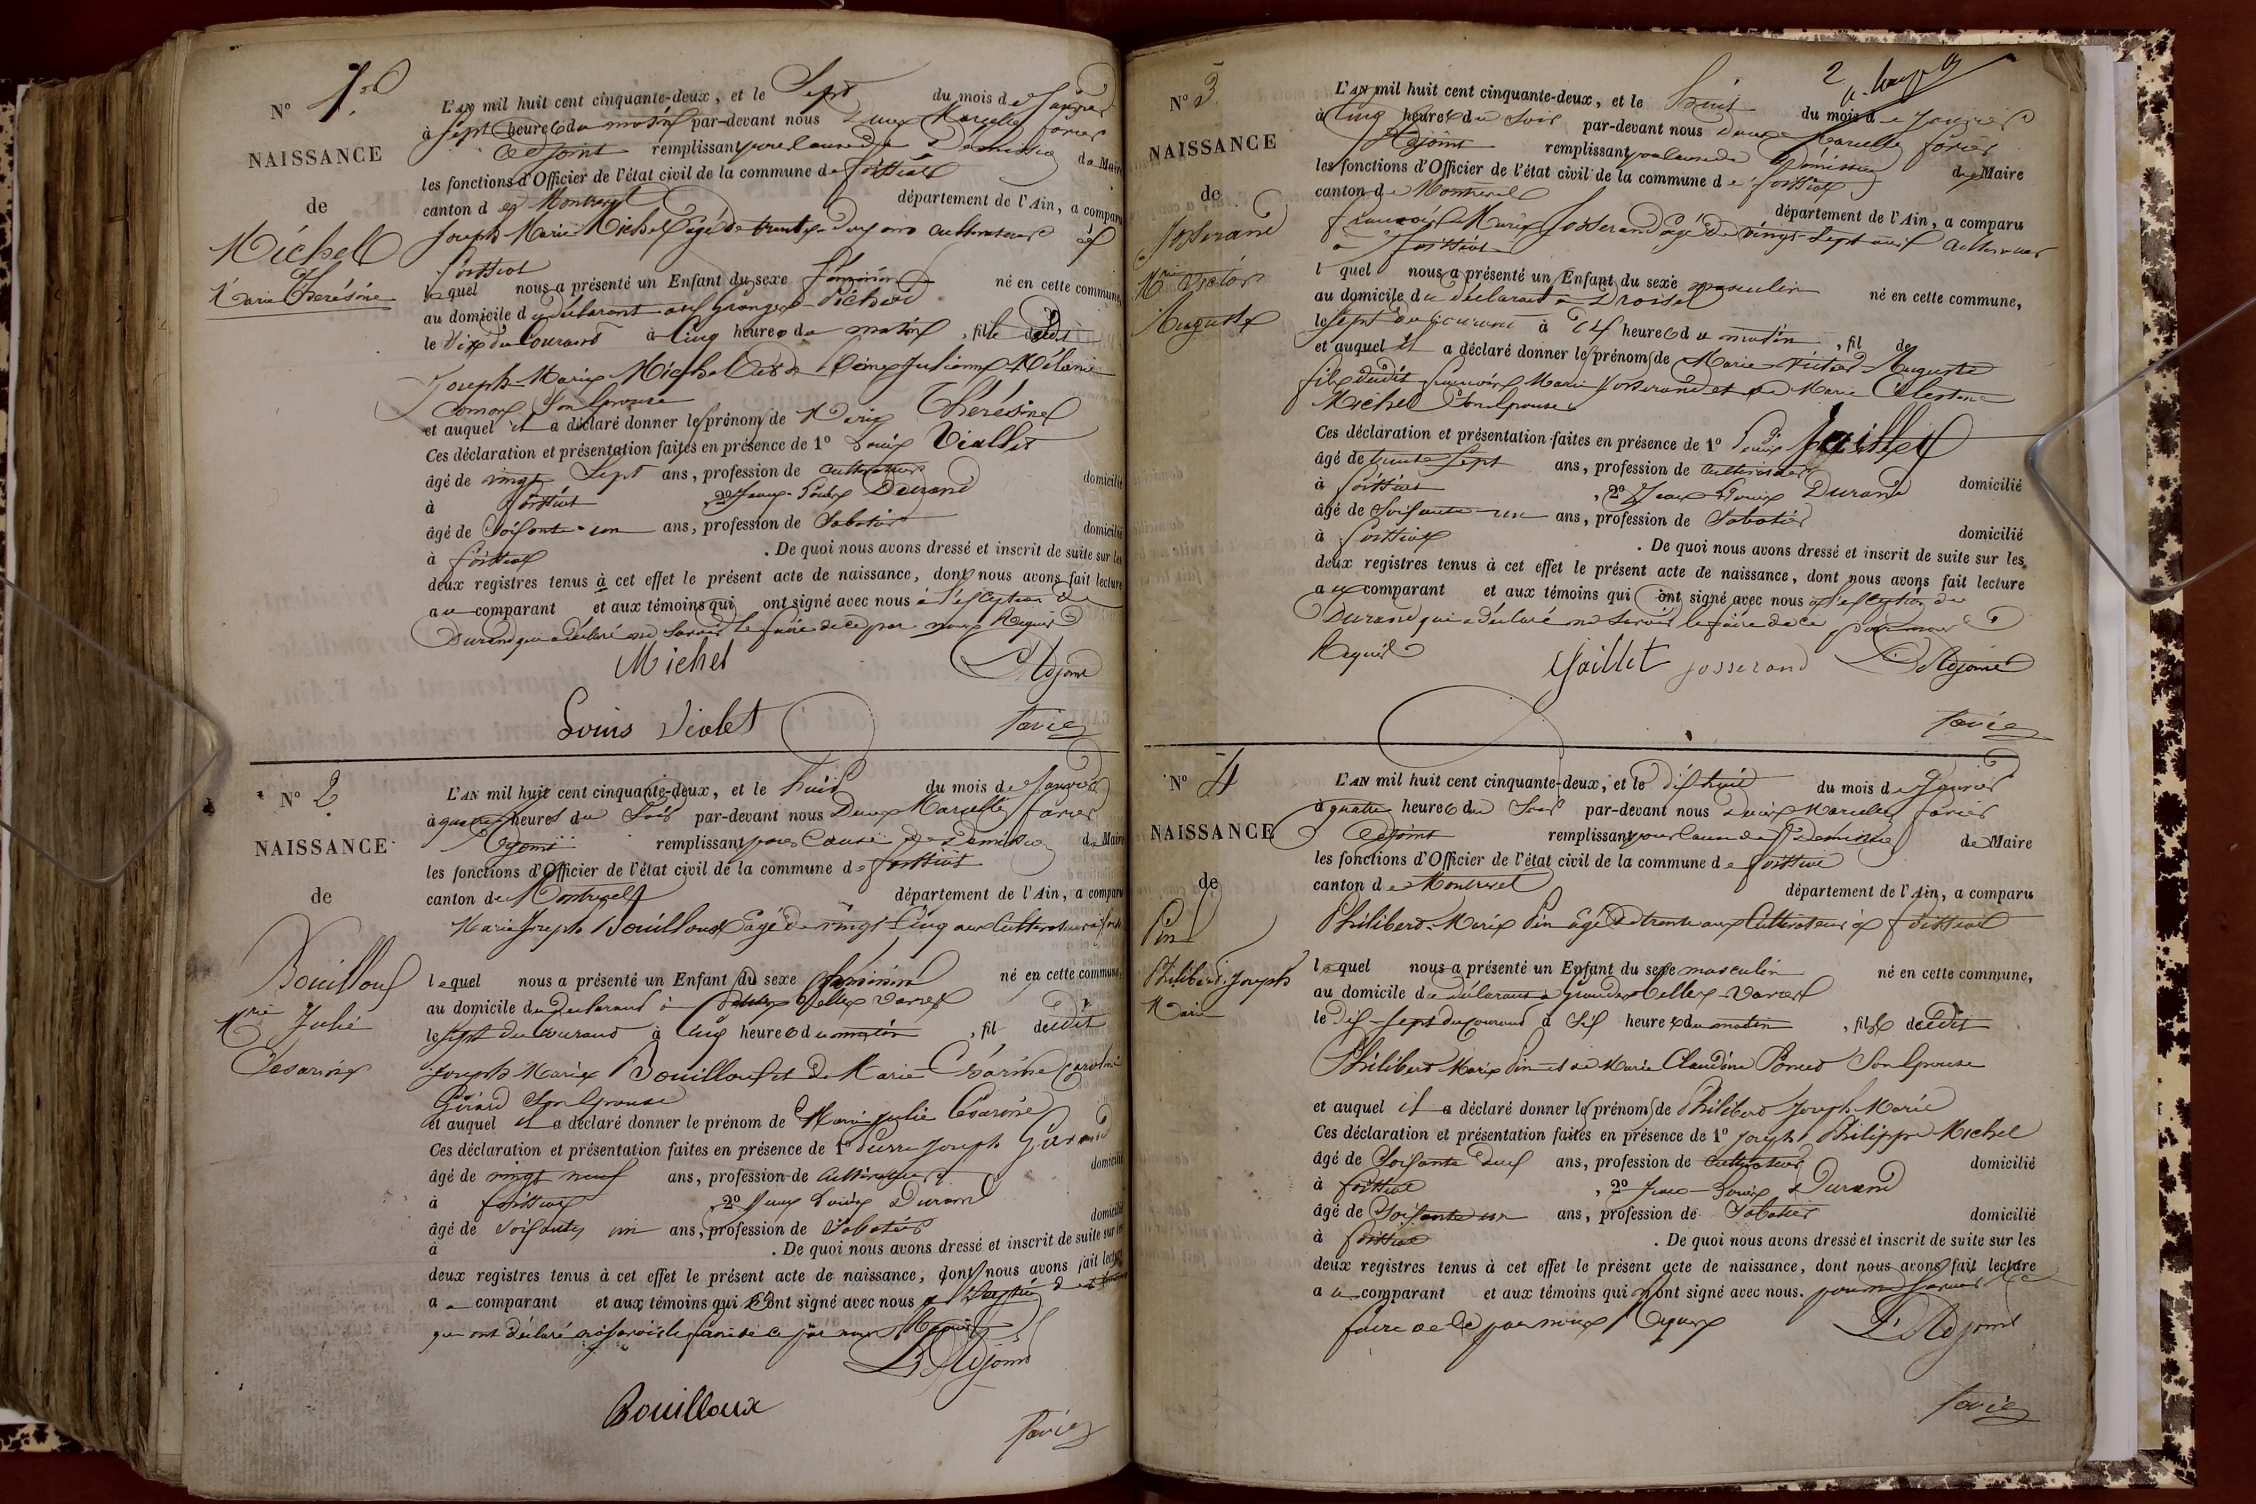 N° 1er
NAISSANCE
de
Michel
Marie Thérésine
L'AN mil huit cent cinquante-deux, et le Sept du mois de Janvier
à Sept heures du matin par-devant nous Marcellin favier
adjoint remplissant pour cause de Démission de Maire
les fonctions d'Officier de l'état civil de la commune de foissiat
canton de Montrevel département de l'Ain, a comparu
Joseph Marie Michel âgé de trente deux ans cultivateur à
foissiat
lequel nous a présenté un Enfant du sexe féminin né en cette commune,
au domicile du déclarant aux granges Pichod
le Six du Courant à Cinq heures du matin, fille dudit
Joseph Marie Michel et de Julienne Mélanie
Son Epouse
et auquel il a déclaré donner les prénom de Marie Thérésine
Ces déclaration et présentation faites en présence de 1° Louis Viallet
âgé de vingt Sept ans, profession de cultivateur domicilié
à foissiat 2° Jean-Louis Durand
âgé de Soixante-un ans, profession de Sabotier domicilié
à foissiat . De quoi nous avons dressé et inscrit de suite sur les
deux registres tenus à cet effet le présent acte de naissance, dont nous avons fait lecture
au comparant et aux témoins qui ont signé avec nous à l'exception de
Durand qui a déclaré ne savoir le faire de ce par nous Requis
Michel L'Adjoint
Louis Violet favier
N° 2
NAISSANCE
de
Bouilloux
Mrie Julie
Césarine
L'AN mil huit cent cinquante-deux, et le huit du mois de Janvier
à quatre heures du Soir par-devant nous Marcellin favier
Adjoint remplissant pour Cause de Démission de Maire
les fonctions d'Officier de l'état civil de la commune de foissiat
canton de Montrevel département de l'Ain, a comparu
Marie Joseph Bouilloux âgé de vingt Cinq ans Cultivateur à
lequel nous a présenté un Enfant du sexe féminin né en cette commune,
au domicile du déclarant à
le Sept du Courant à Cinq heures du matin, fil dudit
Joseph Marie Bouilloux et de Marie Césarine Caroline
Girard Son Epouse
et auquel il a déclaré donner le prénom de Marie Julie Césarine
Ces déclaration et présentation faites en présence de 1° Pierre Joseph
âgé de vingt neuf ans, profession de Cultivateur domicilié
à foissiat 2° Jean Louis Durand
âgé de Soixante un ans, profession de Sabotier domicilié
à . De quoi nous avons dressé et inscrit de suite sur les
deux registres tenus à cet effet le présent acte de naissance, dont nous avons fait lecture
a comparant et aux témoins qui ont signé avec nous
qui ont déclaré ne savoir le faire de ce par nous Requis
L'Adjoint
Bouilloux
favier
2
N° 3
NAISSANCE
de
Josserand
Mrie Victor
Auguste
L'AN mil huit cent cinquante-deux, et le huit du mois de Janvier
à Cinq heures du Soir par-devant nous Marcellin favier
Adjoint remplissant pour cause de Démission de Maire
les fonctions d'Officier de l'état civil de la commune de foissiat
canton de Montrevel département de l'Ain, a comparu
françois Marie Josserand âgé de vingt-Sept ans Cultivateur
à foissiat
lquel nous a présenté un Enfant du sexe masculin né en cette commune,
au domicile du déclarant à
le Sept du courant à heures du matin, fil de
et auquel il a déclaré donner les prénoms de Marie Victor Auguste
fils dudit françois Marie Josserand et de Marie Célestine
Michel Son Epouse
Ces déclaration et présentation faites en présence de 1° Louis Jaillet
âgé de trente Sept ans, profession de Cultivateur domicilié
à foissiat , 2° Jean Louis Durand
âgé de Soixante-un ans, profession de Sabotier domicilié
à foissiat . De quoi nous avons dressé et inscrit de suite sur les
deux registres tenus à cet effet le présent acte de naissance, dont nous avons fait lecture
au comparant et aux témoins qui ont signé avec nous à l'exception de
Durand qui a déclaré ne Savoir le faire de ce par nous
Requis Jaillet josserand L'Adjoint
favier
N° 4
NAISSANCE
de
Pin
Philibert Joseph
Marie
L'AN mil huit cent cinquante-deux, et le dix huit du mois de Janvier
à quatre heures du Soir par-devant nous Marcellin favier
Adjoint remplissant pour cause de Démission de Maire
les fonctions d'Officier de l'état civil de la commune de foissiat
canton de Montrevel département de l'Ain, a comparu
Philibert-Marie Pin âgé de trente ans Cultivateur à foissiat
lequel nous a présenté un Enfant du sexe masculin né en cette commune,
au domicile du déclarant à
le Dix-Sept du Courant à Six heures du matin, fils dudit
Philibert Marie Pin et de Marie Claudine Son Epouse
et auquel il a déclaré donner les prénoms de Philibert Joseph Marie
Ces déclaration et présentation faites en présence de 1° Joseph Philippe Michel
âgé de Soixante Deux ans, profession de Cultivateur domicilié
à foissiat , 2° Jean-Louis Durand
âgé de Soixante un ans, profession de Sabotier domicilié
à foissiat . De quoi nous avons dressé et inscrit de suite sur les
deux registres tenus à cet effet le présent acte de naissance, dont nous avons fait lecture
au comparant et aux témoins qui n'ont signé avec nous. pour ne Savoir le
faire de ce par nous Requis L'Adjoint
favier